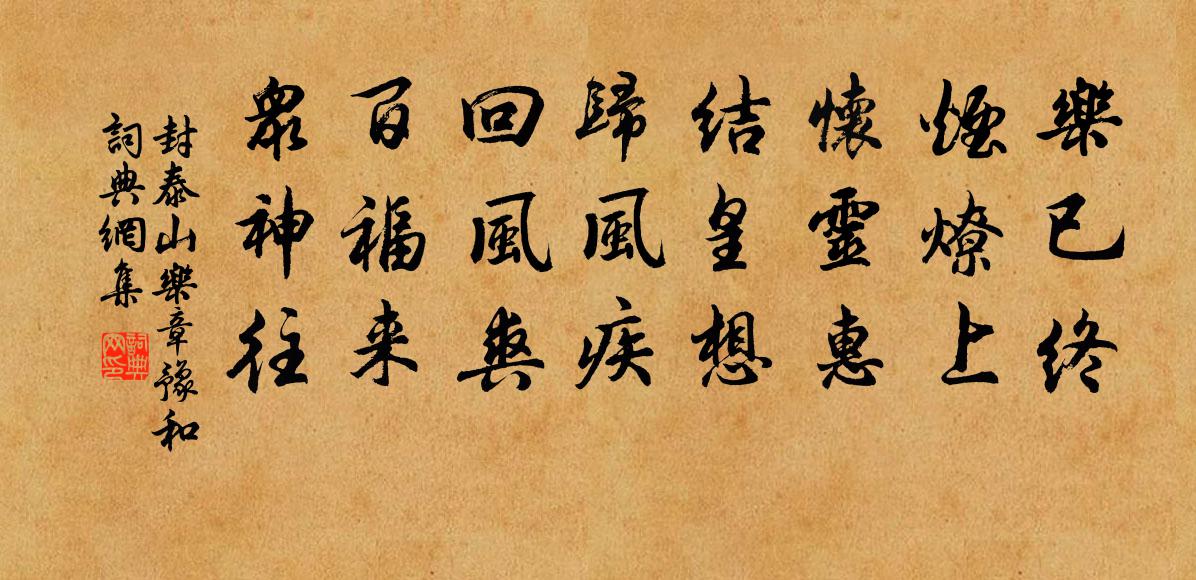 樂已终
煙燎上
懷靈惠
結皇想
歸風疾
回風爽
百福来
衆神往
封泰山樂章豫和
詞典網集
詞典网印